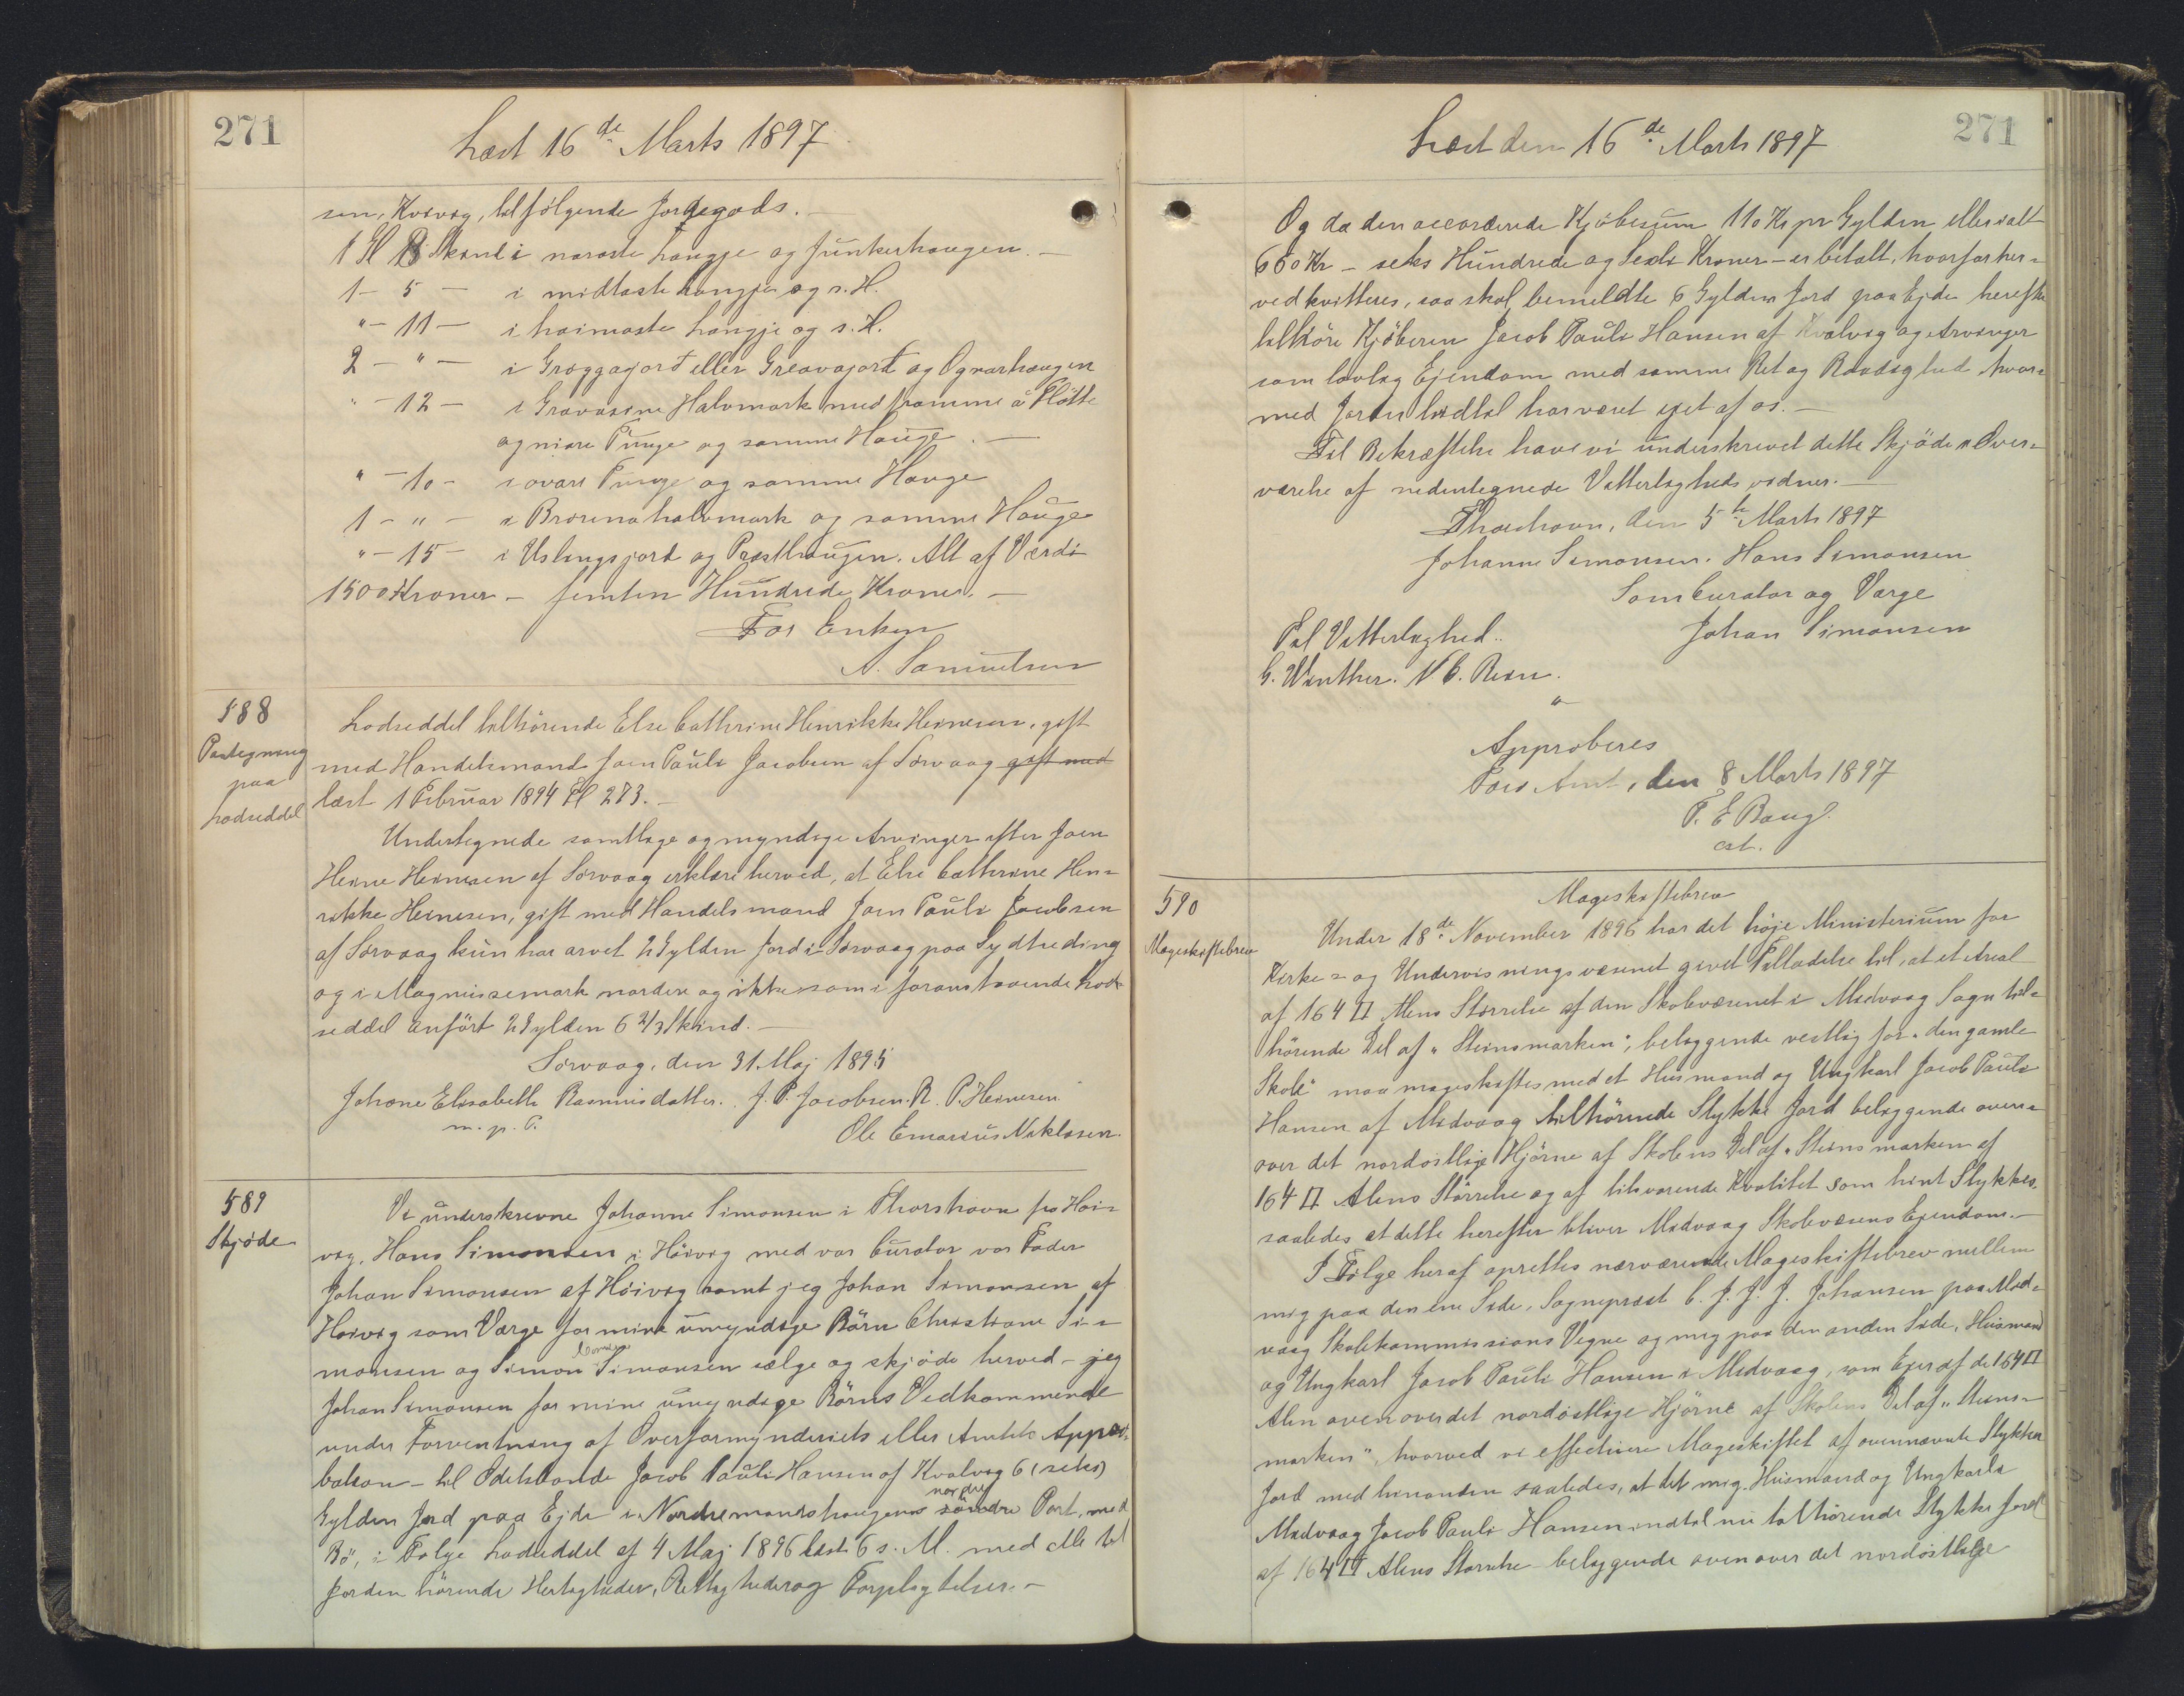 271
Læst 16de Marts 1897
sen, Kvivig, tilfölgende Jordegods.
1 Gl 13 Skind i naraste Langje og Junkerhaugen. —
1 - 5 — i midtaste Langje og s. H.
" - 11 — i haimaste Langje og s. H.
2 - " — i Groggajord eller Greavajord og Ognarhaugen
" - 12 — i Gravarine Halvmark med framme á Fløtte
og niare Tunge og samme Hauge. —
" - 10 - i ovare Tunge og samme Hauge
1 - " - i Brorenahalvmark og samme Hauge
" - 15 - i Uslingsjord og Præsthaugen. Alt af Værdi
1500 Kroner - femten Hundrede Kroner. —
For Enken
A. Samuelsen
588
Paategning
paa
Lodseddel
Lodseddel tilhörende Else Cathrine Henrikke Heinesen, gift
med Handelsmand Joen Pauli Jacobsen af Sörvaag gift med
læst 1 Februar 1894 Fl 273. —
Undertegnede samtlige og myndige Arvinger efter Joen
Heine Heinesen af Sörvaag erklære herved, at Else Cathrine Hen=
rikke Heinesen, gift med Handelsmand Joen Pauli Jacobsen
af Sörvaag kun har arvet 2 Gylden Jord i Sörvaag paa Sydtreding
og i Magnussemark nordere og ikke som i foranstaaende Lod=
seddel anfört 2 Gylden 6 2/3 Skind. —
Sörvaag, den 31. Maj 1895
Johane Elisabeth Rasmusdatter. J. P. Jacobsen. R. P. Heinesen
m. p. P.
Ole Emarius Niklasen.
589
Skjöde
Vi underskrevne Johanne Simonsen i Thorshavn fra Hoi=
vig, Hans Simonsen i Höivig med vor Curator vor Fader
Johan Simonsen af Höivig samt jeg Johan Simonsen af
Hoivig som Værge for mine umyndige Börn Christiane Si=
monsen og Simon Simonsen sælge og skjöde herved - jeg
Johan Simonsen for mine umyndige Börns Vedkommende
under Forventning af Overformynderiets eller Amtets Appro=
bation - til Odelsbonde Jacob Pauli Hansen af Kvalvig 6 (seks)
nordre
Gylden Jord paa Ejde i Nordremandshaugens söndre Part, med
Bö, i Fölge Lodseddel af 4 Maj 1896 læst 6 s. M. med alle til
Jorden hörende Herligheder, Rettigheder og Forpligtelser. —
Læst den 16de Marts 1897
271
Og da den accorderede Kjöbesum 110 Kr pr Gylden eller ialt
660 Kr - seks Hundrede og Seksti Kroner - er betalt, hvorfor her=
ved kvitteres, saa skal bemeldte 6 Gylden Jord paa Ejde herefter
tilhöre Kjöberen Jacob Pauli Hansen af Kvalvig og Arvinger
som lovlig Ejendom med samme Ret og Raadighed hvor=
med Jorden hidtil har været ejet af os. —
Til Bekræftelse have vi underskrevet dette Skjöde i Over=
værelse af nedentegnede Vitterligheds vidner. —
Thorshavn, den 5te Marts 1897
Johanne Simonsen. Hans Simonsen
Som Curator og Værge
Johan Simonsen
Til Vitterlighed..
G. Winther. N C. Resen.
"
Approberes
Færø Amt, den 8 Marts 1897
P. E Baug.
cst.
590
Mageskiftebrev
Mageskiftebrev
Under 18de November 1896 har det höje Ministerium for
Kirke= og Undervisningsvæsenet givet Tilladelse til, at et Areal
af 164 □ Alens Störrelse af den Skolevæsenet i Midvaag Sogn til=
hörende Del af „Steinsmarken", beliggende vestlig for „den gamle
Skole" maa mageskiftes med et Husmand og Ungkarl Jacob Pauli
Hansen af Midvaag tilhörende Stykke Jord beliggende oven=
over det nordöstlige Hjörne af Skolens Del af „Steinsmarken af
164 □ Alens Störrelse og af tilsvarende Kvalitet som hint Stykkes,
saaledes at dette herefter bliver Midvaag Skolevæsens Ejendom. —
I Fölge heraf oprettes nærværende Mageskiftebrev mellem
mig paa den ene Side, Sognepræst C. J. J. J. Johansen paa Mid=
vaag Skolekommissions Vegne og mig paa den anden Side, Husmand
og Ungkarl Jacob Pauli Hansen i Midvaag, som Ejer af de 164 □
Alen oven over det nordöstlige Hjörne af Skolens Del af „Steins=
marken", hvorved vi effectuere Mageskiftet af ovennævnte Stykker
Jord med hinanden saaledes, at det mig, Husmand og Ungkarl i
Midvaag Jacob Pauli Hansen indtil nu tilhörende Stykke Jord
af 164 □ Alens Störrelse beliggende ovenover det nordöstlige